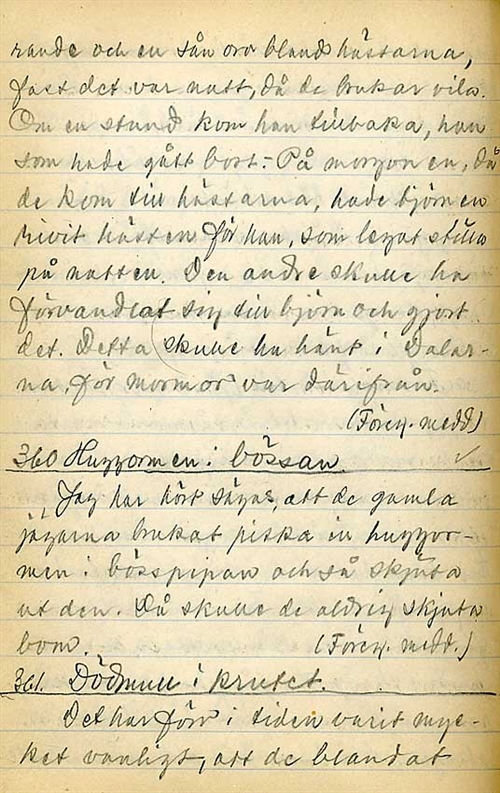 rande och en sån oro bland hästarna,
fast det var natt, då de brukar vila.
Om en stund kom han tillbaka, han
som hade gått bort. På morgonen, då
de kom till hästarna, hade björnen
rivit hästen för han, som legat stilla
på natten. Den andre skulle ha
förvandlat sig till björn och gjort
det. Detta skulle ha hänt i Dalar-
na, för mormor var därifrån.
(Föreg. medd)
360 Huggormen i bössan
Jag har hört sägas, att de gamla
jägarna brukat piska in huggor-
men i bösspipan och så skjuta
ut den. Då skulle de aldrig skjuta
bom. (Föreg. medd.)
361. Dödmull i krutet.
Det har förr i tiden varit myc-
ket vanligt, att de blandat